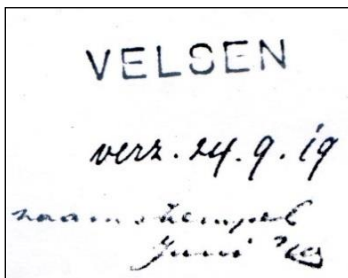 VELSEN
verz. 24. 9. 19
naamstempel
Juni